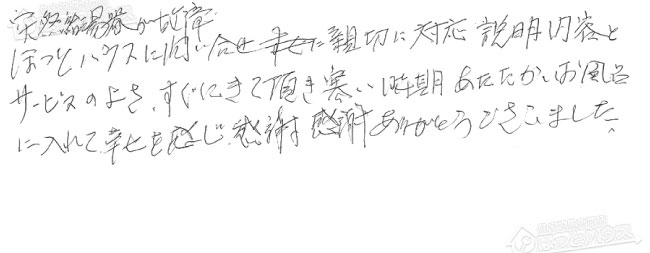 突然給湯器が故障
ほっとハウスに問い合せ 親切に対応 説明内容と
サービスのよさ、すぐにきて頂き寒い時期あたたかいお風呂
に入れて、幸せを感じ 感謝 感謝 ありがとうございました。
ほっとハウス